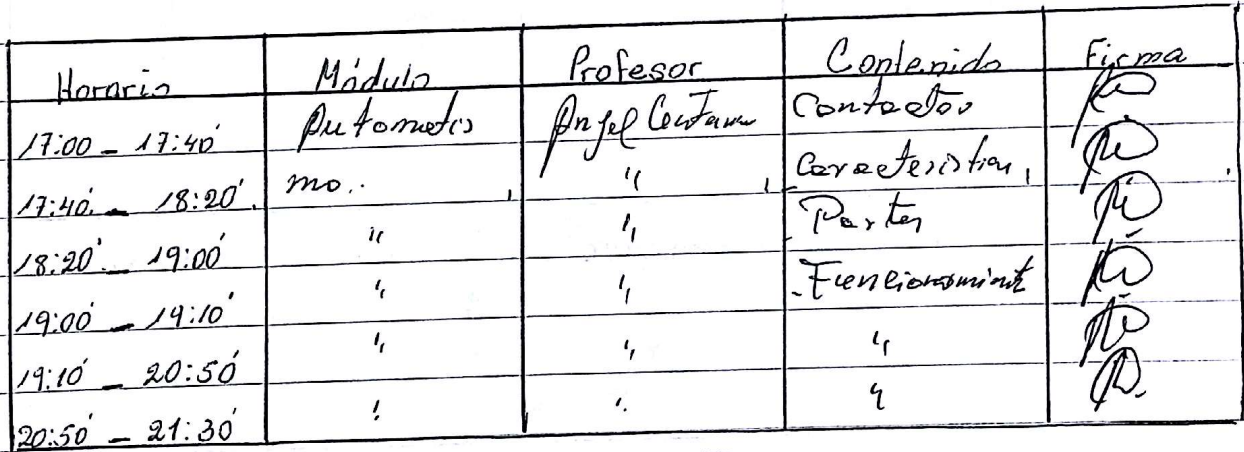 Horario Módulo Profesor Contenido Firma
17:00 - 17:40 Automatis Angel Contactor
17:40 - 18:20 mo.. " Caracteristica
18:20 - 19:00 " " Partes
19:00 - 19:10 " " Funcionamient
19:10 - 20:50 " " "
20:50 - 21:30 " " "